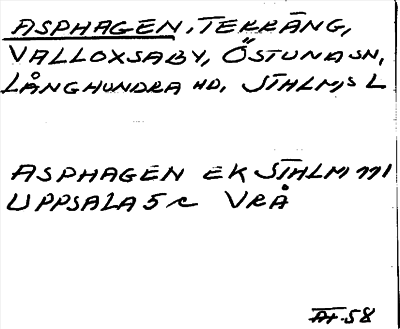 ASPHAGEN, TERRÄNG,
VALLOXSABY, ÖSTUNA SN,
LÅNGHUNDRA HD, STHLM,S L
ASPHAGEN EK STHLM 111
UPPSALA 5 c VRÅ
58